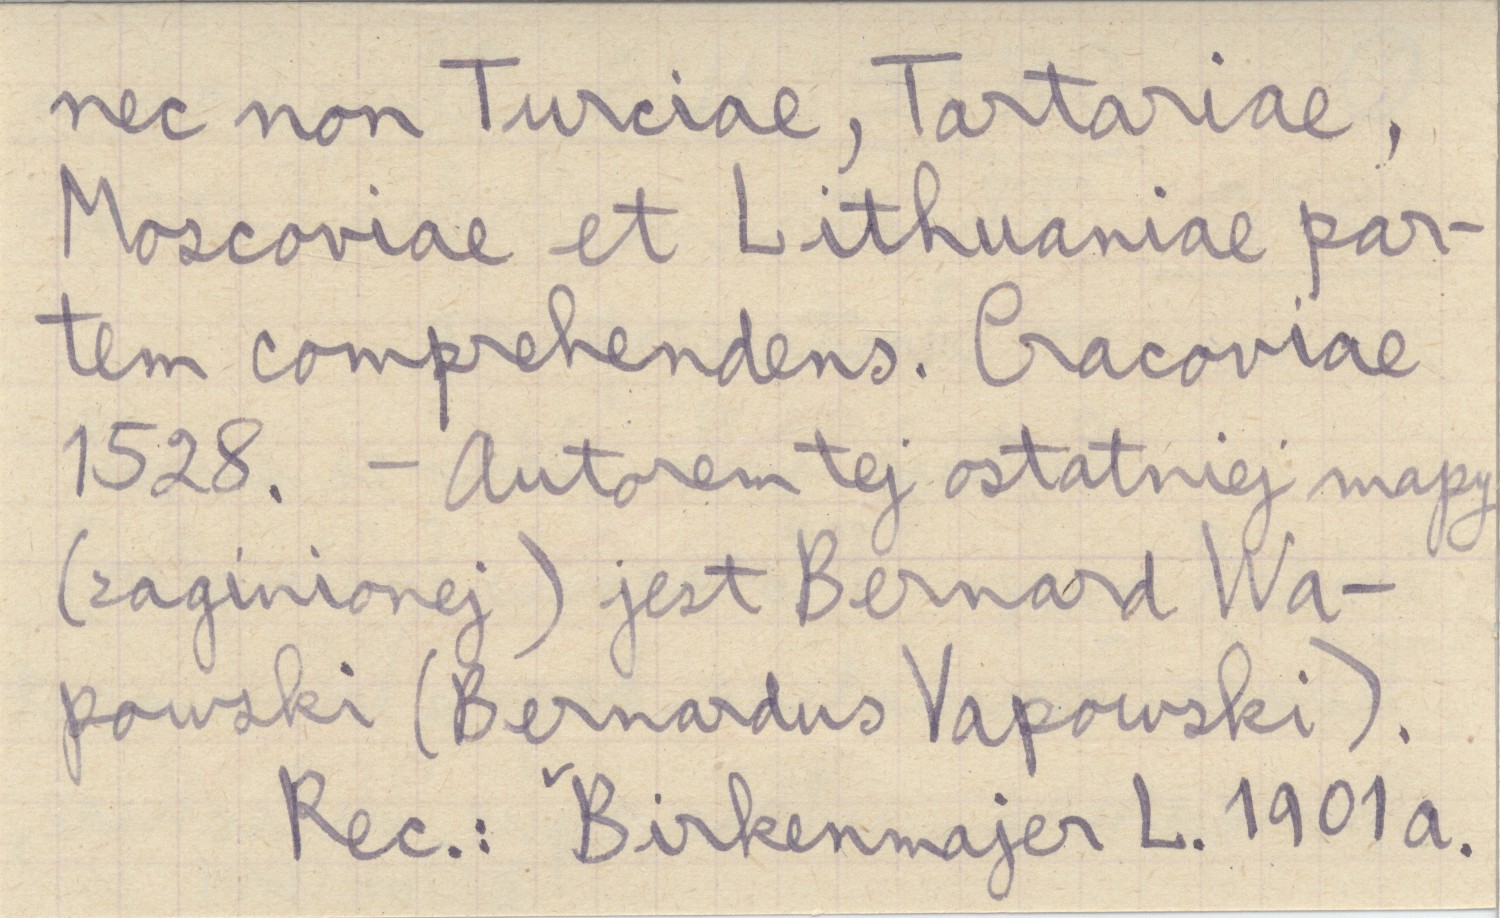 nec non Turciae, Tartariae,
Moscoviae et Lithuaniae par-
tem comprehendens. Cracoviae
1528. – Autorem tej ostatniej mapy
(zaginionej) jest Bernard Wa-
powski (Bernardus Vapowski).
Rec.: ˇBirkenmajer L. 1901a.